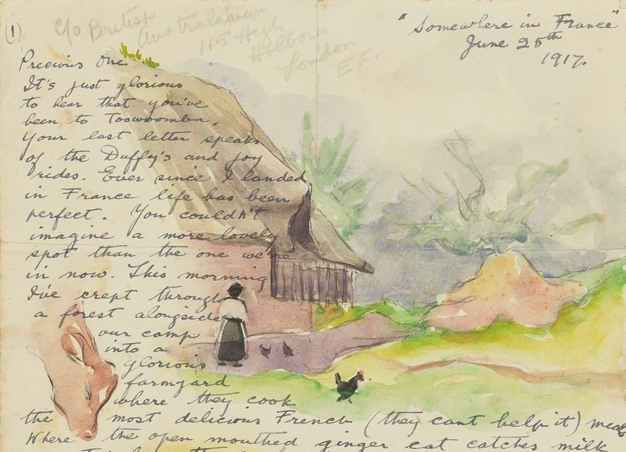 (1)
c/o British
Australasian
115 High
Holborn
London
E.C.
"Somewhere in France"
June 25th
1917.
Precious One
It's just glorious
to hear that you've
been to Toowoomba.
Your last letter speaks
of the Duffy's and joy
rides. Ever since I landed
in France life has been
perfect. You couldn't
imagine a more lovely
spot than the one we're
in now. This morning
I've crept through
a forest alongside
our camp
into a
glorious
farmyard
where they cook
the most delicious French (they cant help it) meals
Where the open mouthed ginger cat catches milk